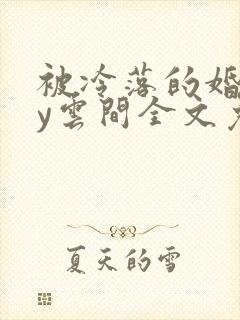 被冷落的婚
y雲間全文
夏天的雪